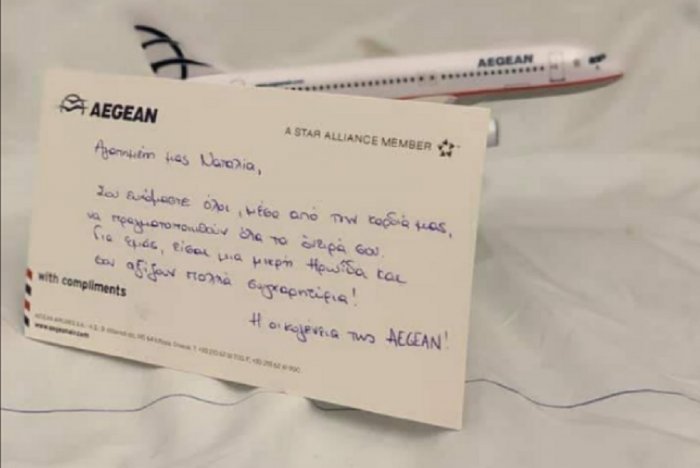 AEGEAN
AEGEAN
A STAR ALLIANCE MEMBER
Αγαπημένη μας Ναταλία,
Σου ευχόμαστε όλοι, μέσα από την καρδιά μας,
να πραγματοποιηθούν όλα τα όνειρά σου.
Για εμάς, είσαι μια μικρή Ηρωίδα και
σου αξίζουν πολλά συγχαρητήρια!
Η οικογένεια της AEGEAN!
with compliments
AEGEAN AIRLINES S.A.
www.aegeanair.com